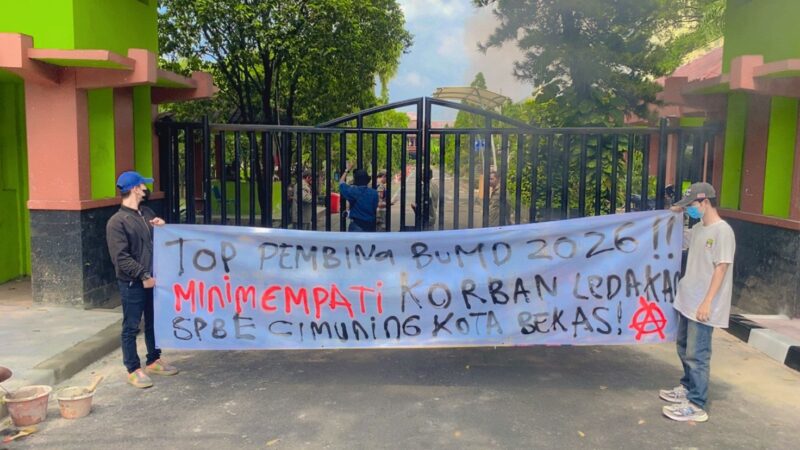 TOP PEMBINa BUMD 2026 !!
MiNiMEMPATi KORBAN LEDAKAN
SPBE CIMUNING KOTA BEKASI!